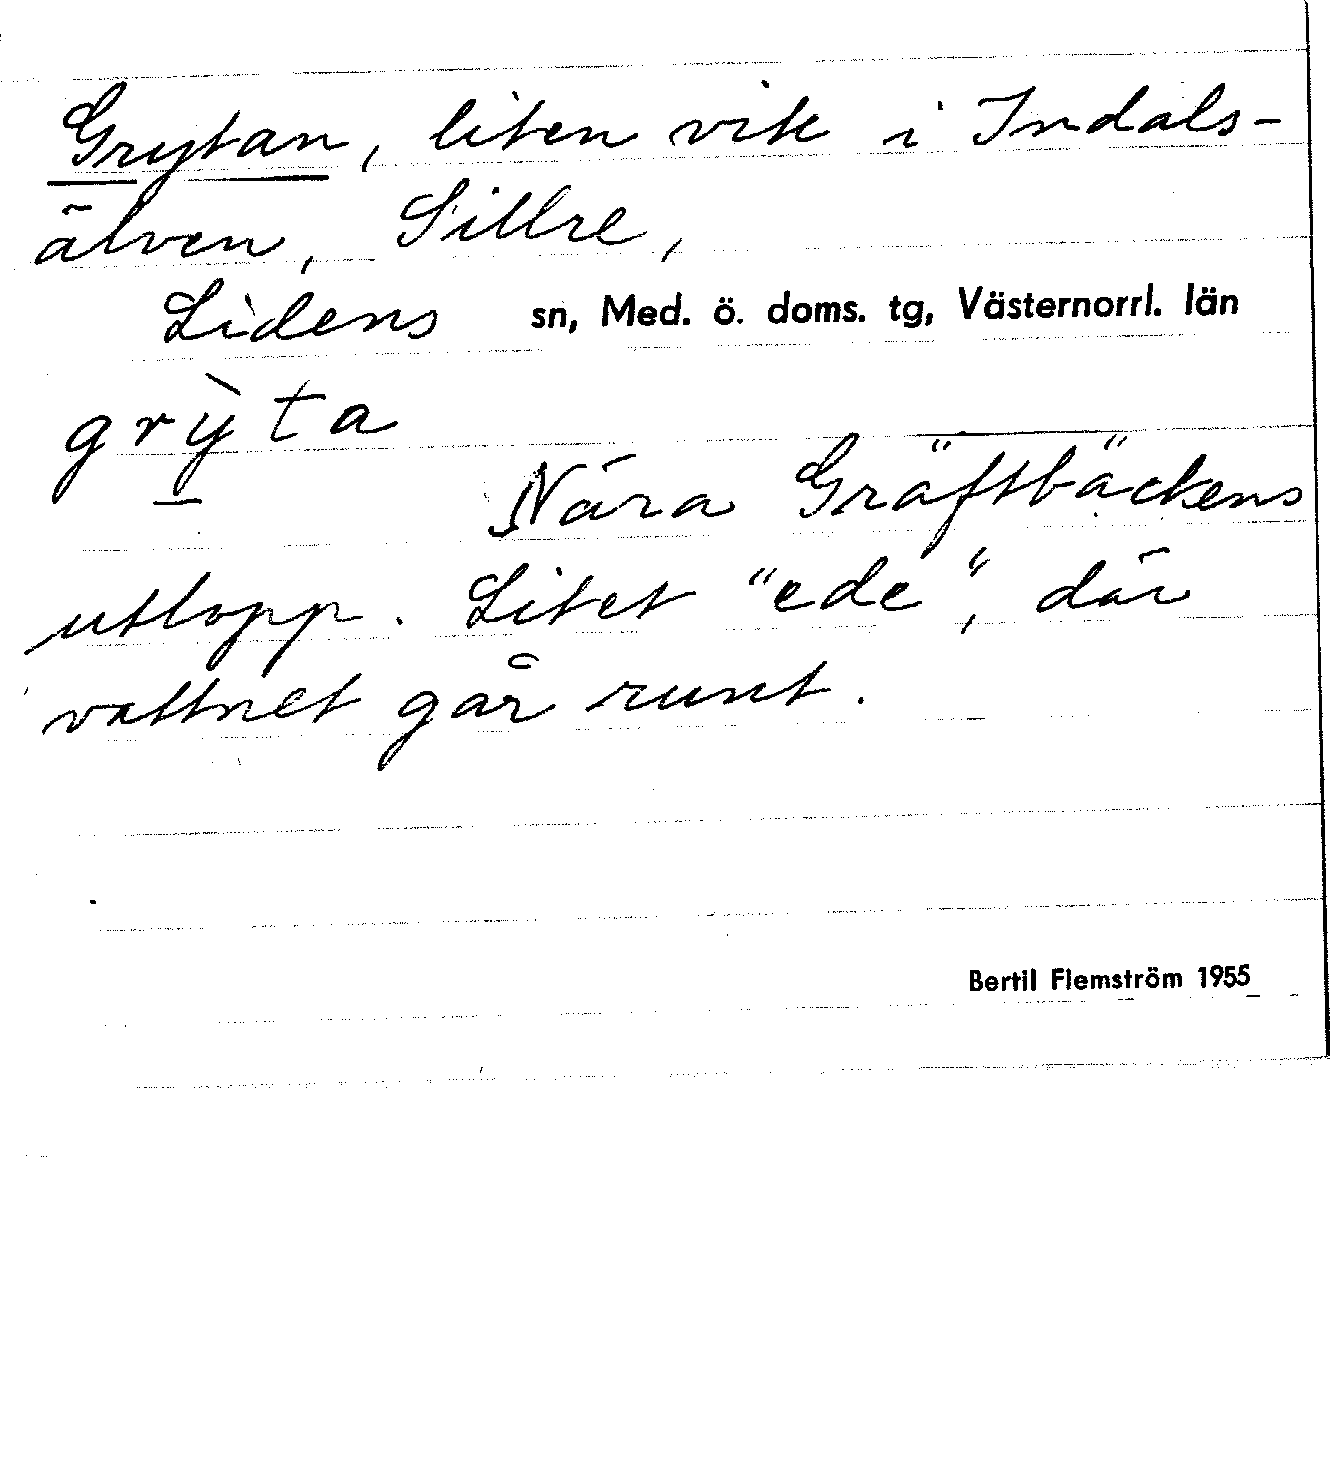 Grytan, liten vik i Indals-
älven, Sillre,
Lidens sn, Med. ö. doms. tg, Västernorrl. län
grỳta
Nära Gräftbäckens
utlopp. Litet "ede", där
vattnet går runt.
Bertil Flemström 1955